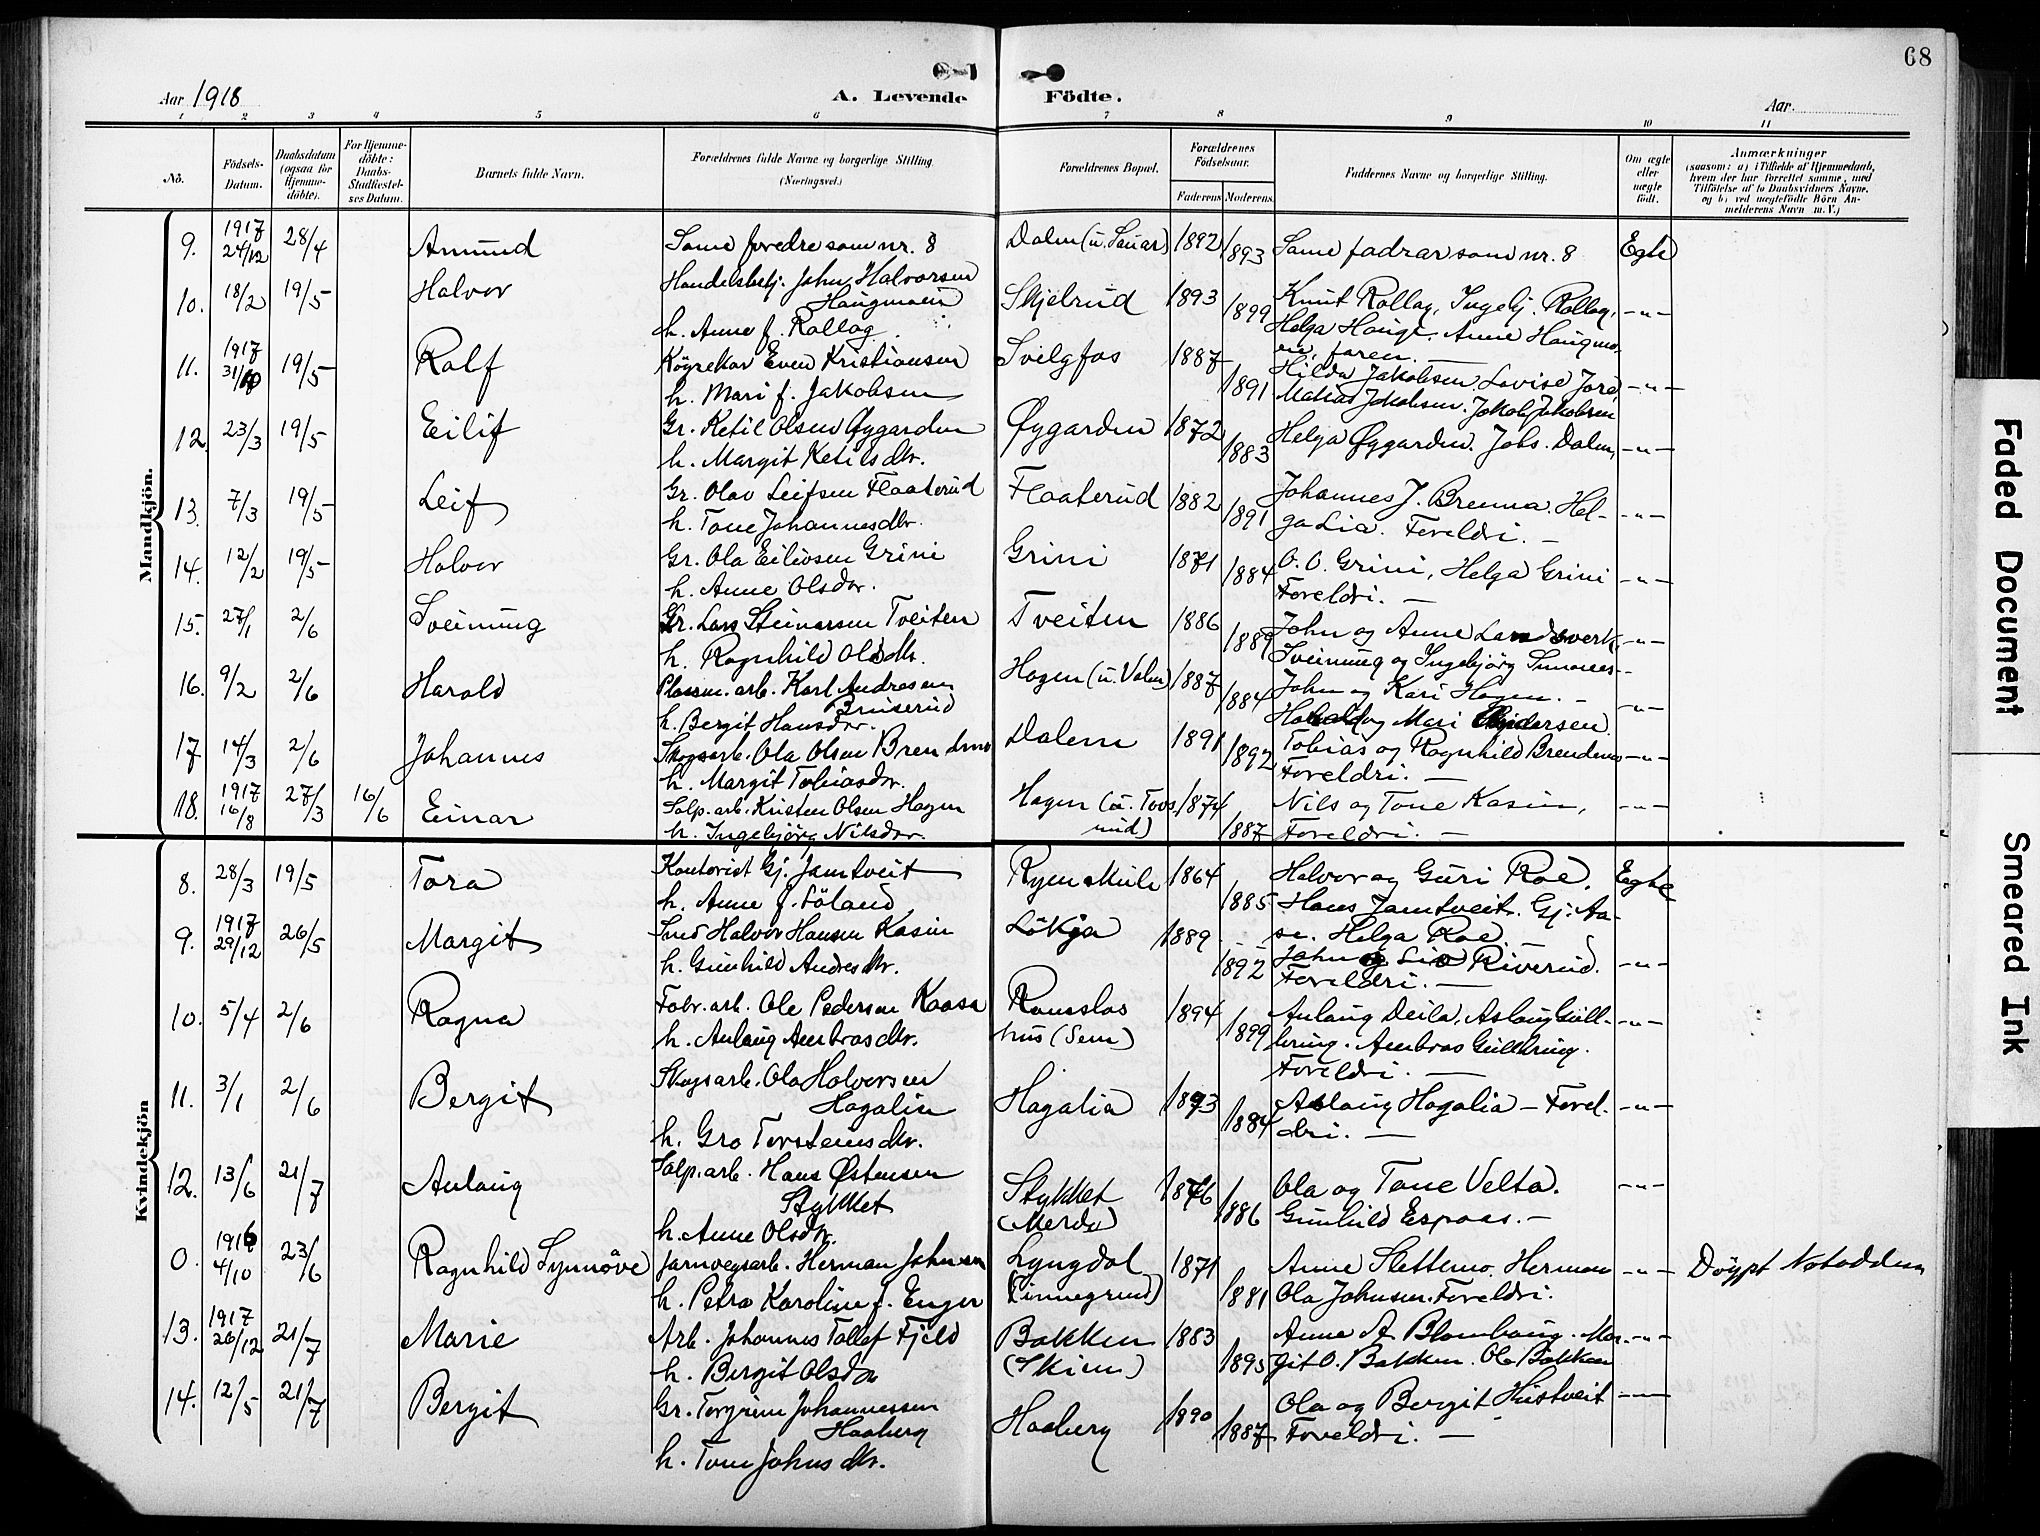 68
Aar 1918
A. Levende Födte.
Aar.
1 2 3 4 5 6 7 8 9 10 11
No.
Födsels-Datum.
Daabsdatum (ogsaa for Hjemme-döbte).
For Hjemme-döbte: Daabs-Stadfæstel-ses Datum.
Barnets fulde Navn.
Forældrenes fulde Navne og borgerlige Stilling. (Næringsvei.)
Forældrenes Bopæl.
Forældrenes Födselsaar.
Faderens Moderens
Faddernes Navne og borgerlige Stilling.
Om ægte eller uægte födt.
Anmærkninger
(saasom: a) i Tilfælde af Hjemmedaab, hvem der har forrettet samme, med Tilföielse af to Daabsvidners Navne, og b) ved uægtefödte Börn An-melderens Navn m. V.)
Mandkjön.
9. 1917 24/12 28/4 Amund Same foredre som nr. 8 Dalen (u. Sauar) 1892 1893 Same fadrar som nr. 8 Egte
10. 18/2 19/5 Halvor Handelsbetj. John Halvorsen Haugmoen 
h. Anne f. Rollag Skjelrud 1893 1899 Knut Rollag, Ingebj. Rollag, -"-
Helga Hauge, Anne Haugmo-en, faren. —
11. 1917 31/10 19/5 Ralf Köyrekar Even Kristiansen
h. Mari f. Jakobsen Svelgfos 1887 1891 Hilda Jakobsen, Lovise Jore, -"-
Matias Jakobsen, Jakob Jakobsen
12. 23/3 19/5 Eilif Gr. Ketil Olsen Øygarden
h. Margit Ketilsdtr. Øygarden 1872 1883 Helga Øygarden, Johs. Dalen, -"-
13. 7/3 19/5 Leif Gr. Olav Leifsen Flaaterud
h. Tone Johannesdtr. Flaaterud 1882 1891 Johannes J. Brenna. Hel- -"-
ga Lia. Foreldri. —
14. 12/2 19/5 Halvor Gr. Ola Eilivsen Grini
h. Anne Olsdtr. Grini 1871 1884 O. O. Grini, Helga Grini -"-
Foreldri. —
15. 27/1 2/6 Sveinung Gr. Lars Steinarsen Tveiten
h. Ragnhild Olsdtr. Tveiten 1886 1889 John og Anne Landsverk, -"-
Sveinung og Ingebjörg
16. 9/2 2/6 Harald arb. Karl Andresen Bruserud
h. Bergit Hansdtr. Hagen (u. Valen) 1887 1884 John og Kari Hagen. - -"-
Harald og Mari Andersen
17 14/3 2/6 Johannes Skogsarb. Ola Olsen Brendmo
h. Margit Tobiasdtr. Dalen 1891 1892 Tobias og Ragnhild Brendmo -"-
Foreldri. —
18. 1917 16/8 27/3 16/6 Einar Salp. arb. Kristen Olsen Hagen
h. Ingebjörg Nilsdtr. Hagen 1874 1887 Nils og Tone Kasin, -"-
Foreldri. —
Kvindekjön
8. 28/3 19/5 Tora Kontorist Gj. Jamtveit
h. Anne f. Föland Ryen skule 1864 1885 Halvor og Guri Roe, Egte
Hans Jamtveit. Gj. Aa-se. Helga Roe —
9. 1917 29/12 26/5 Margit Smed Halvor Hansen Kasin
h. Gunhild Andresdtr. Lökja 1889 1892 John og Riverud. -"-
Foreldri. —
10. 5/4 2/6 Ragna Fabr. arb. Ole Pedersen Kaasa
h. Aslaug Ambrosdtr. Ramslos hus (Sem) 1894 1899 Aslaug Deila, Aslaug Gull- -"-
bring. Ambros Gullbring.
Foreldri. —
11. 3/1 2/6 Bergit Skogsarb. Ola Halvorsen Hagalia
h. Gro Torsteinsdtr. Hagalia 1893 1884 Aslaug Hagalia — Forel- -"-
dri. —
12. 13/6 21/7 Aslaug Salp. arb. Hans Østensen Stykket
h. Anne Olsdtr. Stykket (Merde) 1876 1886 Ola og Tone Velta. -"-
Gunhild Espaas. —
0. 1916 4/10 23/6 Ragnhild Synnöve Jarnvegsarb. Herman Johnsen
h. Petra Karoline f. Enger Lyngdal (Finnegrund) 1871 1881 Anne Slettemo. Herman -"- Döypt Notodden
Ola Johnsen. Foreldri.
13. 1917 26/12 21/7 Marie Arb. Johannes Tollef Fjeld
h. Bergit Olsdtr Bakken (Skien) 1883 1895 Anne A. Blomhaug. Mar- -"-
git O. Bakken. Ola Bakken
14. 12/5 21/7 Bergit Gr. Torgrim Johannessen Haaberg
h. Tone Johnsdtr. Haaberg 1890 1887 Ola og Bergit Hustveit -"-
Foreldri. —
Faded Document
Smeared Ink